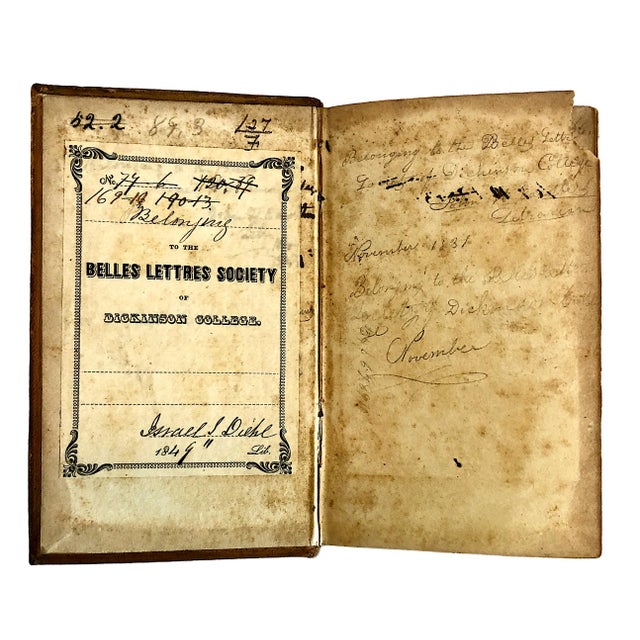 52.2 89.3 137
7
No 74 6 190.39
169.19 190 13
Belonging
TO THE
BELLES LETTRES SOCIETY
OF
DICKINSON COLLEGE.
Israel S. Diehl
1849" Lib.
Belonging to the Belles Lettres
Dickinson College
Librarian
November 1831
Belonging to the
Society Dickinson
November